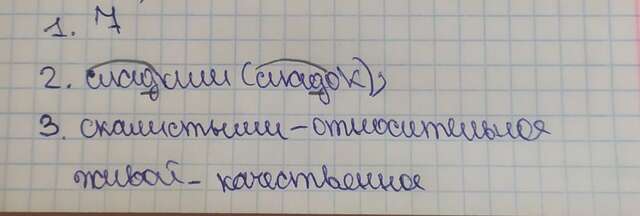 1. 7
2. сладкими (сладок);
3. скалистыми - относительное
живой - качественное